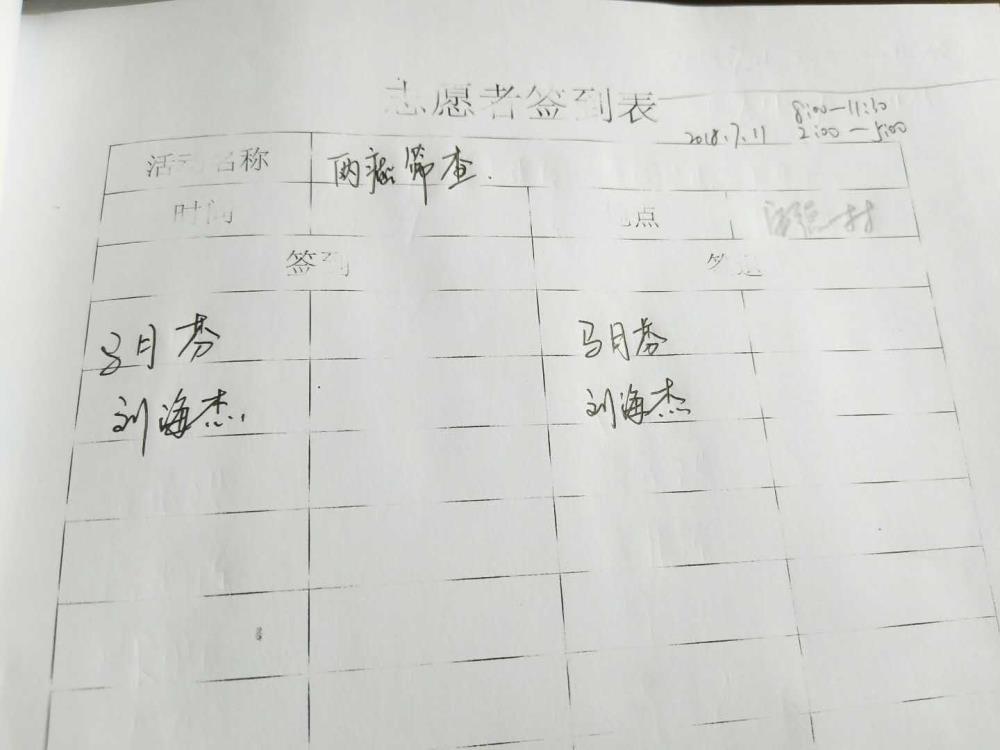 志愿者签到表
8:00—11:30
2018.7.11 2:00—5:00
活动名称 两癌筛查.
时间 地点
签到 签退
马月芬 马月芬
刘海杰 刘海杰